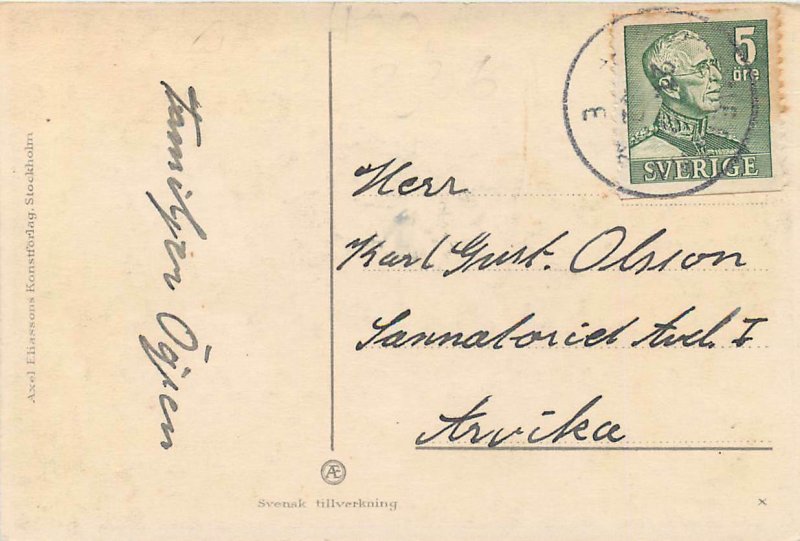 Axel Eliassons Konstförlag. Stockholm
Familjen Ögren
5
öre
SVERIGE
Herr
Karl Gust. Olsson
Sannatoriet Avd. I
Arvika
Æ
Svensk tillverkning
x